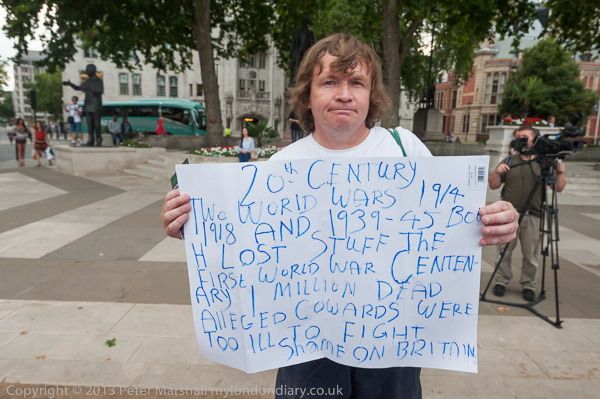 20th CENTURY
TWO WORLD WARS 1914
1918 AND 1939-45 BOT
H LOST STUFF THE
FIRST WORLD WAR CENTEN-
ARY 1 MILLION DEAD
ALLEGED COWARDS WERE
TOO ILL TO FIGHT
SHAME ON BRITAIN
Copyright © 2013 Peter Marshall mylondondiary.co.uk